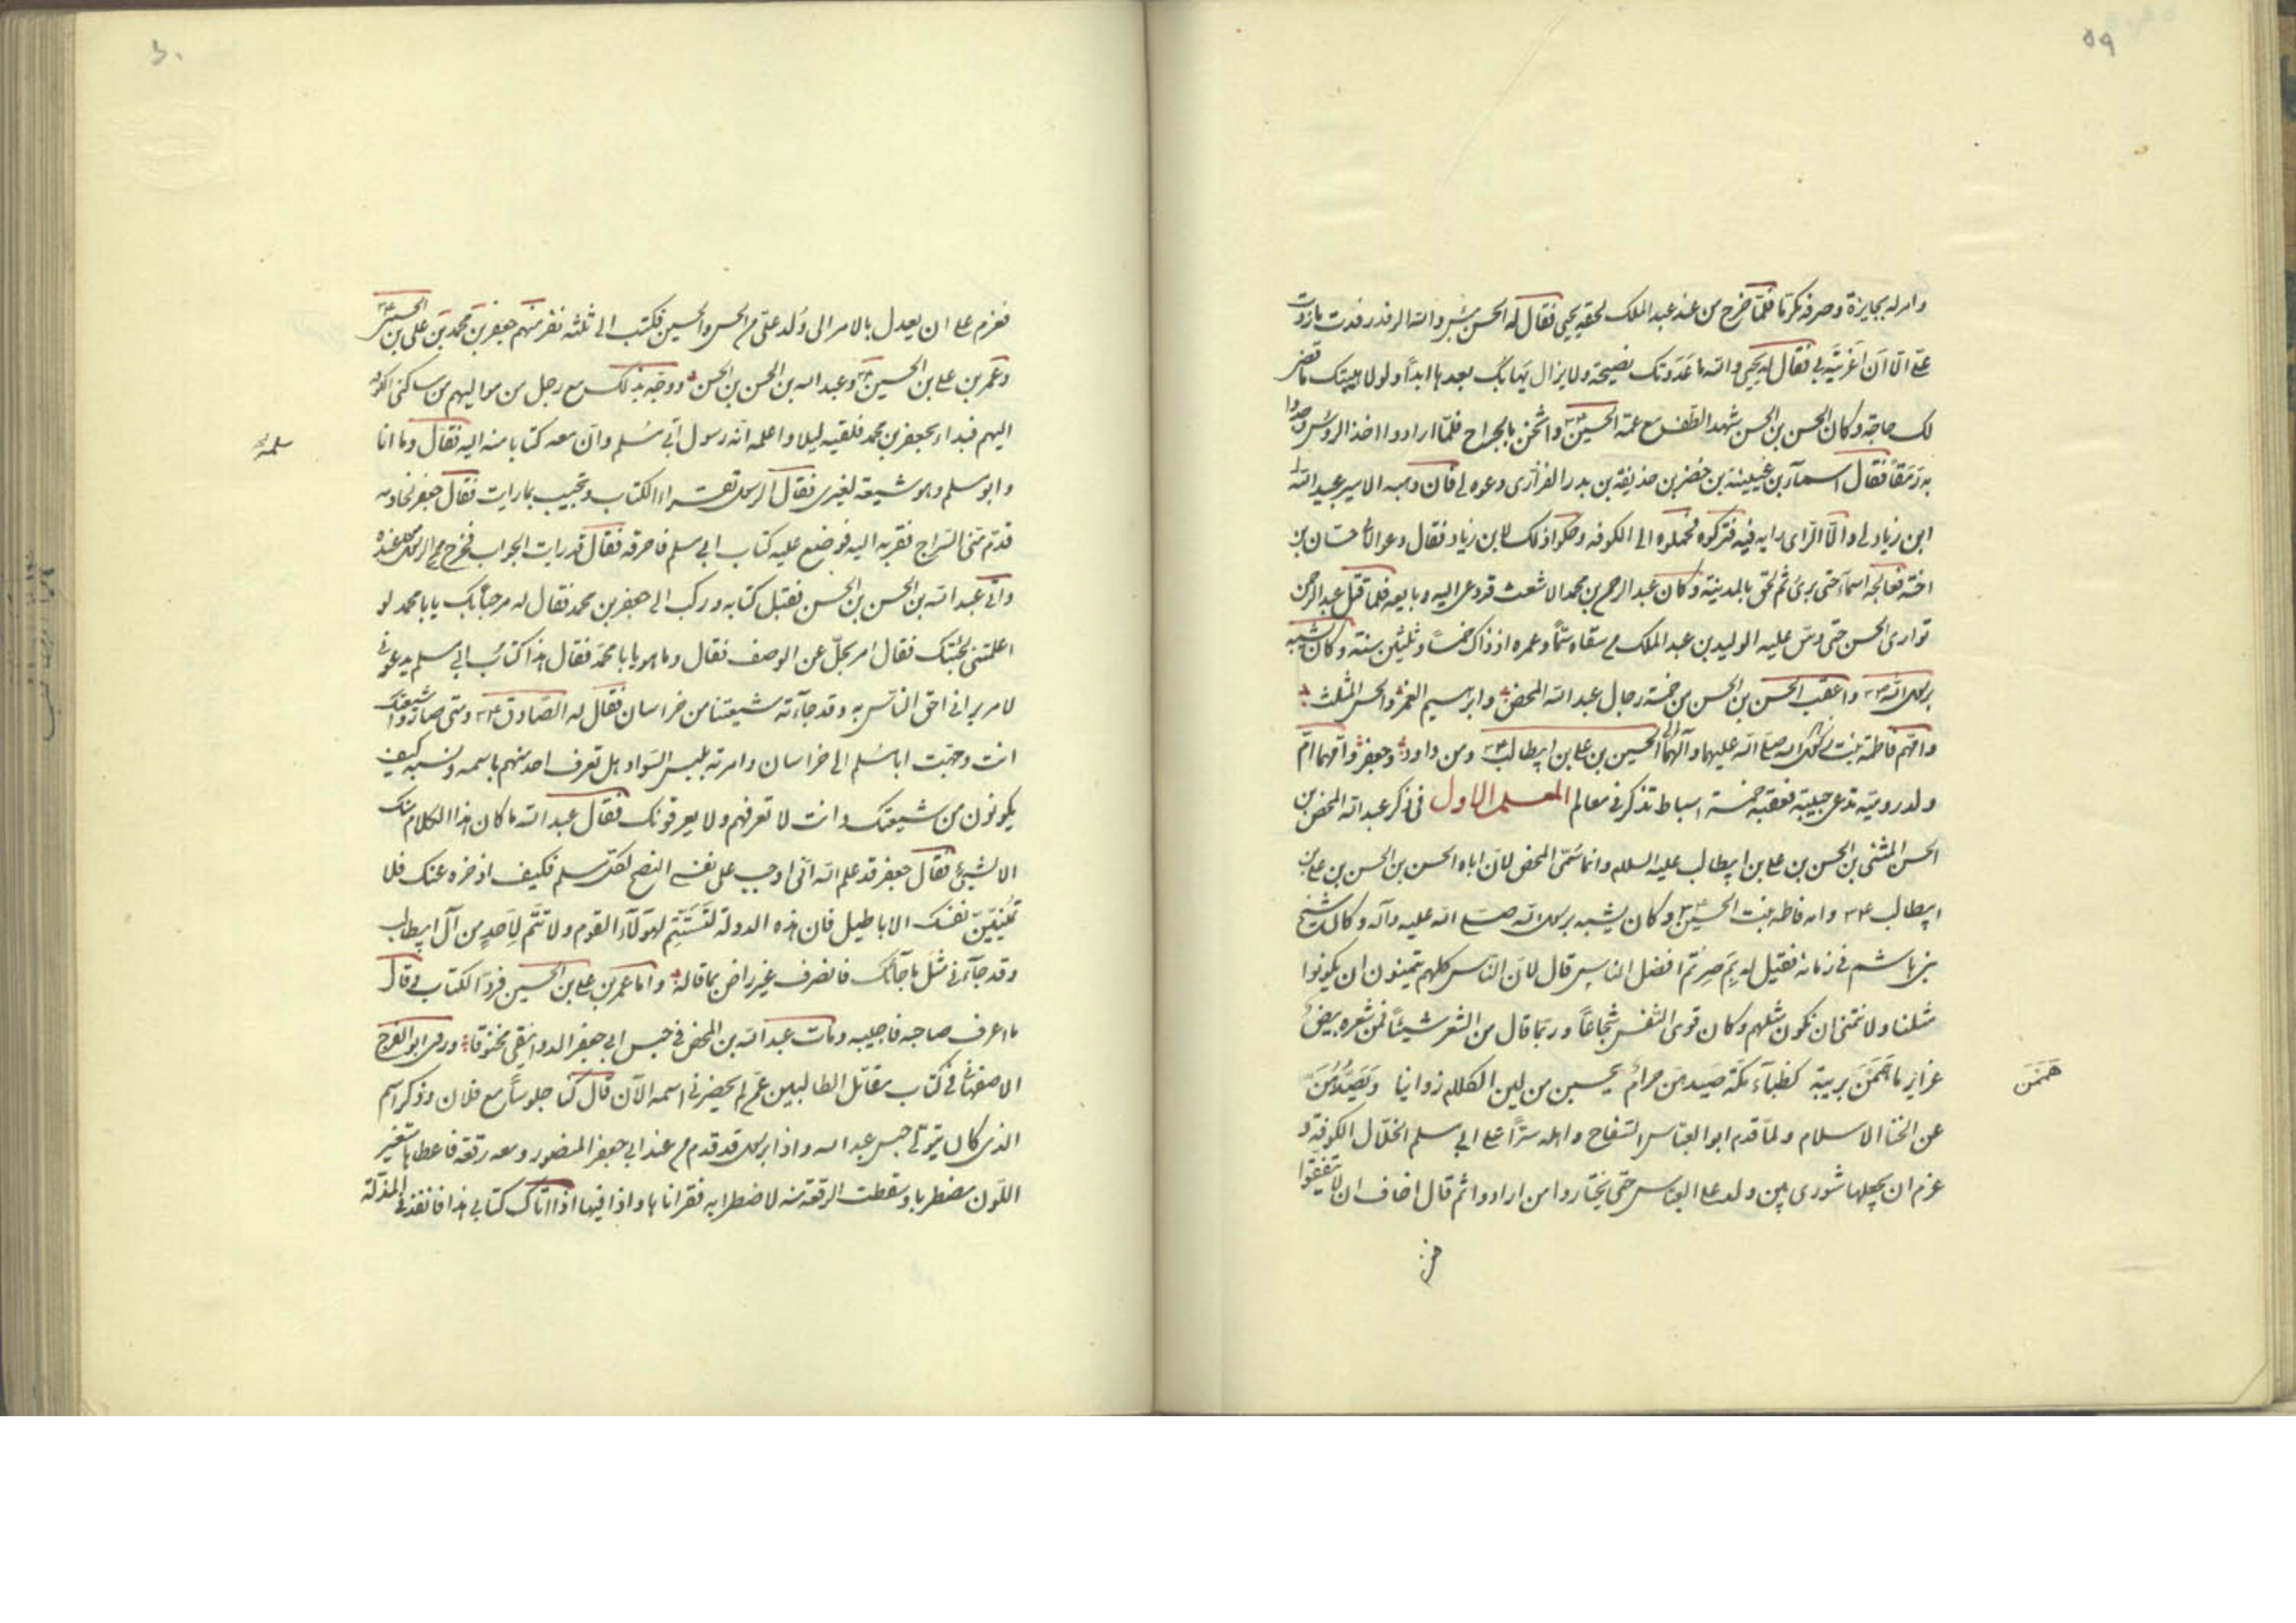 ٥٩
وامر له بجايزة وصرفه مكرما فلما خرج من عند عبد الملك لحقه يحيى فقال له الحسن بئس والله الرفد رفدت ما زدت
على الا ان اغريته بي فقال له يحيى والله ما عدوتك نصيحة ولا يزال يهابك بعدها ابدا ولولا هيبتك ما قضى
لك حاجة وكان الحسن بن الحسن شهد الطف مع عمه الحسين واثخن بالجراح فلما ارادوا اخذ الروس وجدوا
به رمقا فقال اسمآء بن عيينة بن خضر بن حذيفة بن بدر الفزارى دعوه لي فان وهبه الامير عبيد الله
ابن زياد لي والا راى رايه فيه فتركوه فحملوه الى الكوفه وحكوا ذلك لابن زياد فقال دعوا لابي حسان بن
اخته فعالجه اسمآء حتى برئ ثم لحق بالمدينة وكان عبد الرحمن بن محمد الاشعث قد دعى اليه وبايعه فلما قتل عبد الرحمن
توارى الحسن حتى دس عليه الوليد بن عبد الملك من سقاه سما وعمره اذ ذاك خمسا وثلثين سنة وكان يشبه
برسول الله واعقب الحسن بن الحسن من خمسة رجال عبد الله المحض وابراهيم الغمر والحسن المثلث
وامهم فاطمة بنت الحسين بن على بن ابيطالب ومن داود وجعفر وامهما ام
ولد رومية تدعى حبيبة فعقبه خمسة اسباط تذكر في معالم المعلم الاول في ذكر عبد الله المحض بن
الحسن المثنى بن الحسن بن على بن ابيطالب عليه السلام وانما سمى المحض لان اباه الحسن بن الحسن بن على بن
ابيطالب وامه فاطمه بنت الحسين وكان يشبه برسول الله صلى الله عليه وآله وكان شيخ
بني هاشم في زمانه فقيل له بم صرتم افضل الناس قال لان الناس كلهم يتمنون ان يكونوا
مثلنا ولا نتمنى ان نكون مثلهم وكان قوى النفس شجاعا وربما قال من الشعر شيئا فمن شعره بيض
غراير ما هممن بريبة كظبآء مكة صيدهن حرام يحسبن من لين الكلام زوانيا ويصدهن
هممن
عن الخنا الاسلام ولما قدم ابو العباس السفاح واهله سرا على ابي سلم الخلال الكوفة و
عزم ان يجعلها شورى بين ولد على والعباس حتى يختاروا من ارادوا ثم قال اخاف ان لا يتفقوا
فعزم على ان يعدل بالامر الى ولد على من الحسن والحسين فكتب الى ثلثة نفر منهم جعفر بن محمد بن على بن الحسين
وعمر بن على بن الحسين وعبد الله بن الحسن بن الحسن ووجه بذلك مع رجل من مواليهم من ساكنى الكوفه
اليهم فبدا بجعفر بن محمد فلقيه ليلا واعلمه انه رسول ابي سلم وان معه كتابا منه اليه فقال وما انا
سلمة
وابو سلم وهو شيعة لغيرى فقال الرسول تقراء الكتاب وتجيب بما رايت فقال جعفر لخادمه
قدم منى السراج فقربه اليه فوضع عليه كتاب ابي سلم فاحرقه فقال قد رايت الجواب فخرج الرسول من عنده
واتى عبد الله بن الحسن بن الحسن فقبل كتابه وركب الى جعفر بن محمد فقال له مرحبا بك يا ابا محمد لو
اعلمتنى لجئتك فقال امر يجل عن الوصف فقال وما هو يا ابا محمد فقال هذا كتاب ابي سلم يدعونى
لامر يرانى احق الناس به وقد جآءته شيعتنا من خراسان فقال له الصادق ومتى صاروا شيعتك
انت وجهت ابا سلم الى خراسان وامرته بلبس السواد هل تعرف احد منهم باسمه ونسبه كيف
يكونون من شيعتك وانت لا تعرفهم ولا يعرفونك فقال عبد الله ما كان هذا الكلام منك
الا لشيئ فقال جعفر قد علم الله انى اوجب على نفسى النصح لكل مسلم فكيف اذخره عنك فلا
تمنين نفسك الاباطيل فان هذه الدولة لتستتم لهولآء القوم ولا تتم لاحد من آل ابيطالب
وقد جآءنى مثل ما جآئك فانصرف غير راض بما قاله واما عمر بن على بن الحسين فرد الكتاب وقال
ما اعرف صاحبه فاجيبه ومات عبد الله بن المحض في حبس ابي جعفر الدوانيقى مخنوقا وروى ابو الفرج
الاصفهانى في كتاب مقاتل الطالبيين عمن لم يحضرنى اسمه الآن قال كنا جلوسا مع فلان وذكر اسم
الذى كان يتولى حبس عبد الله واذا برسول قد قدم من عند ابي جعفر المنصور ومعه رقعة فاعطاها فتغير
اللون مضطربا وسقطت الرقعة منه لاضطرابه فقرانا ها واذا فيها اذا اتاك كتابى هذا فانفذ في المذلة